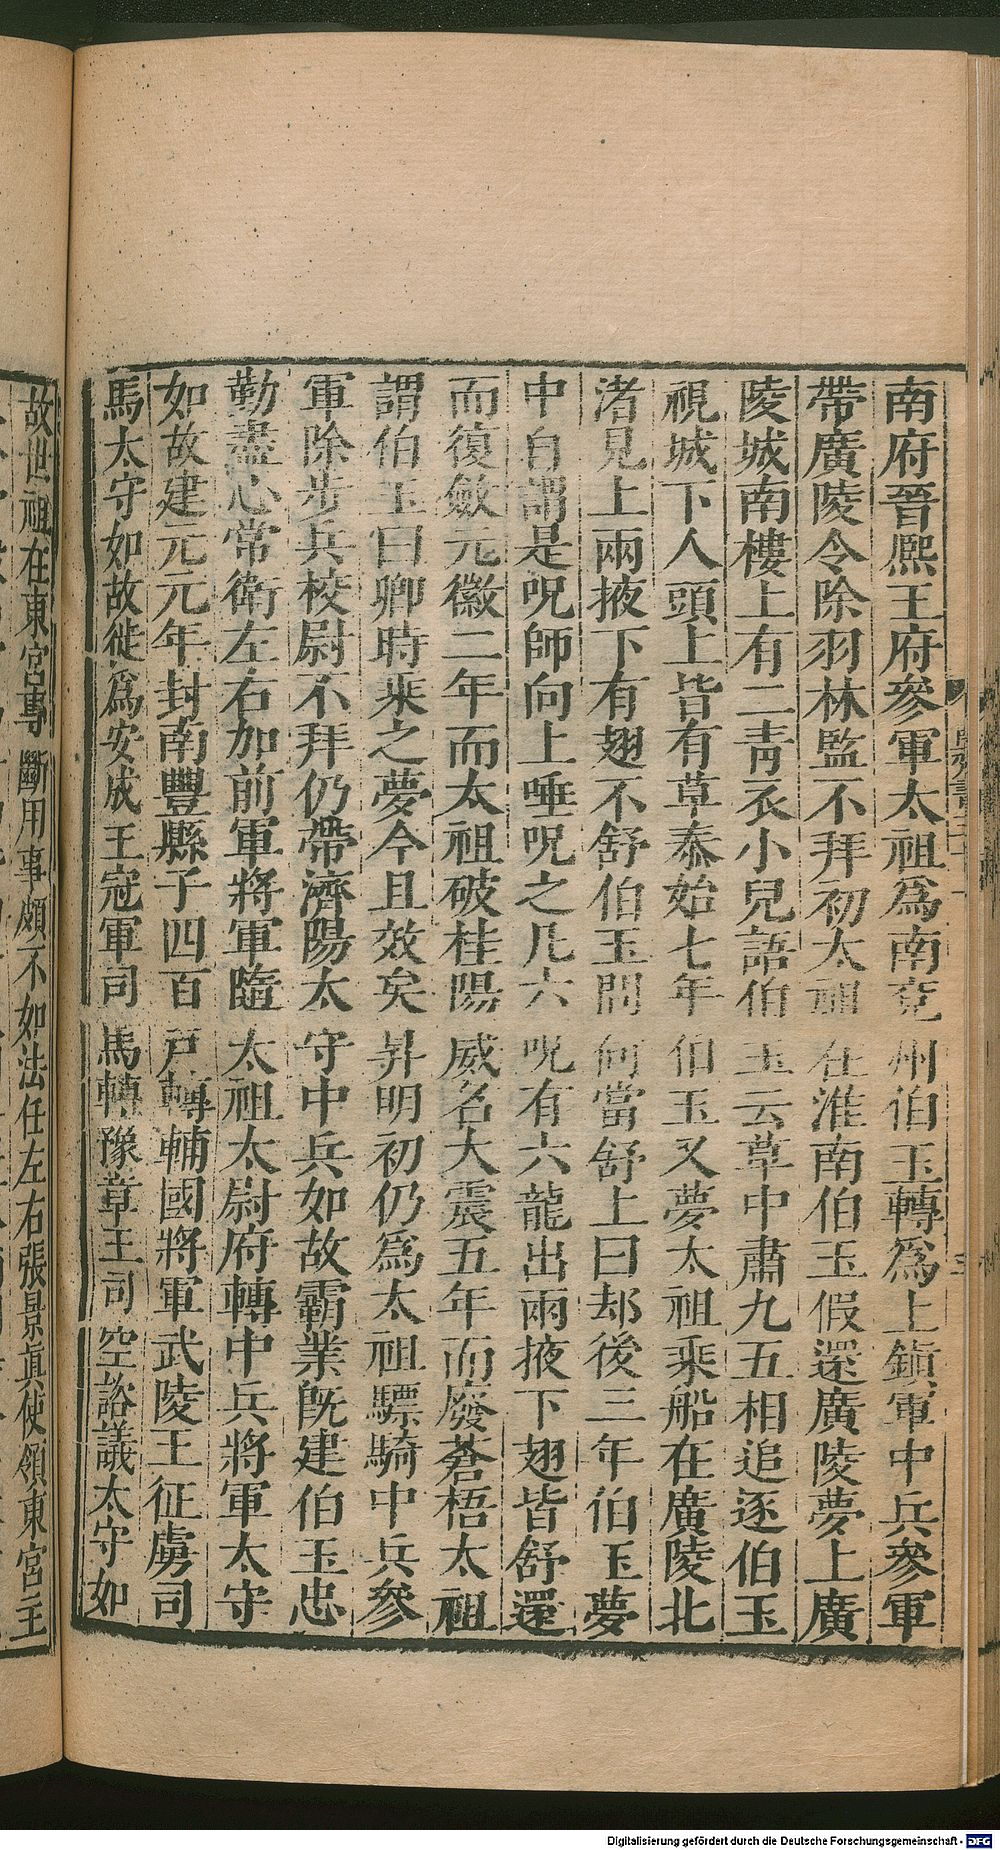 南府晉熙王府參軍太祖爲南兗州伯玉轉爲上鎭軍中兵參軍
帶廣陵令除羽林監不拜初太祖在淮南伯玉假還廣陵夢上廣
陵城南樓上有二靑衣小兒語伯玉云草中肅九五相追逐伯玉
視城下人頭上皆有草泰始七年伯玉又夢太祖乘船在廣陵北
渚見上兩掖下有翅不舒伯玉問何當舒上曰却後三年伯玉夢
中自謂是呪師向上唾呪之凡六呪有六龍出兩掖下翅皆舒還
而復斂元徽二年而太祖破桂陽威名大震五年而廢蒼梧太祖
謂伯玉曰卿時乘之夢今且效矣昇明初仍爲太祖驃騎中兵參
軍除步兵校尉不拜仍帶濟陽太守中兵如故霸業旣建伯玉忠
勤盡心常衛左右加前軍將軍隨太祖太尉府轉中兵將軍太守
如故建元元年封南豐縣子四百戶轉輔國將軍武陵王征虜司
馬太守如故徙爲安成王冠軍司馬轉豫章王司空諮議太守如
故世祖在東宮專斷用事頗不如法任左右張景眞使領東宮主
Digitalisierung gefördert durch die Deutsche Forschungsgemeinschaft - DFG